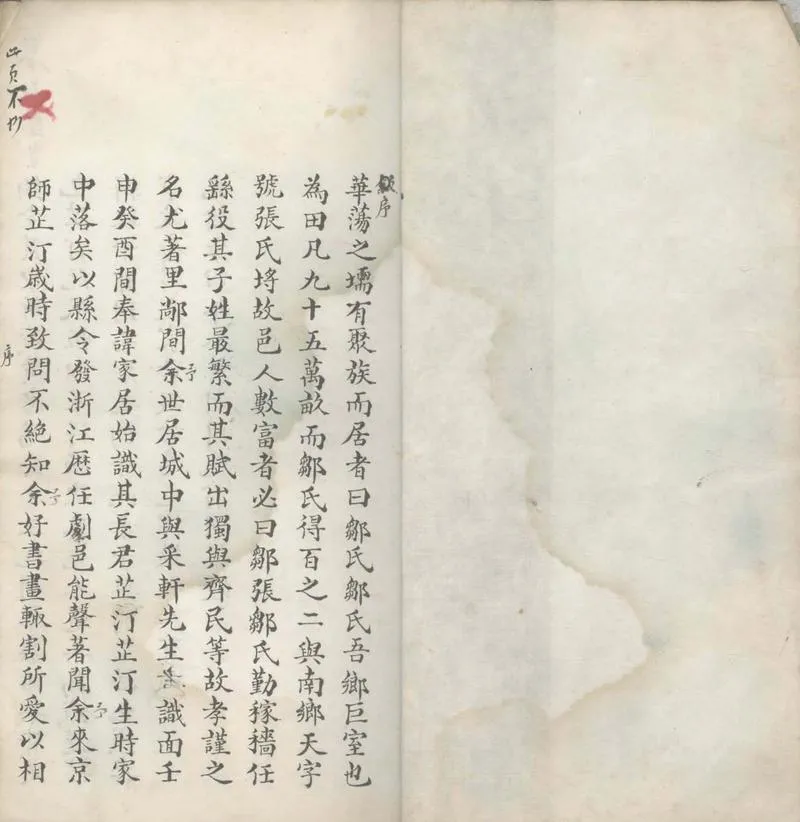 序
華蕩之壖有聚族而居者曰鄒氏鄒氏吾鄉巨室也
為田凡九十五萬畝而鄒氏得百之二與南鄉天字
號張氏埒故邑人數富者必曰鄒張鄒氏勤稼穡任
繇役其子姓最繁而其賦出獨與齊民等故孝謹之
名尤著里間余世居城中與采軒先生識面壬
予
申癸酉間奉諱家居始識其長君芷汀芷汀生時家
中落矣以縣令發浙江歷任劇邑能聲著聞余來京
予
師芷汀歲時致問不絕知余好書畫輒割所愛以相
予
此頁不抄
序